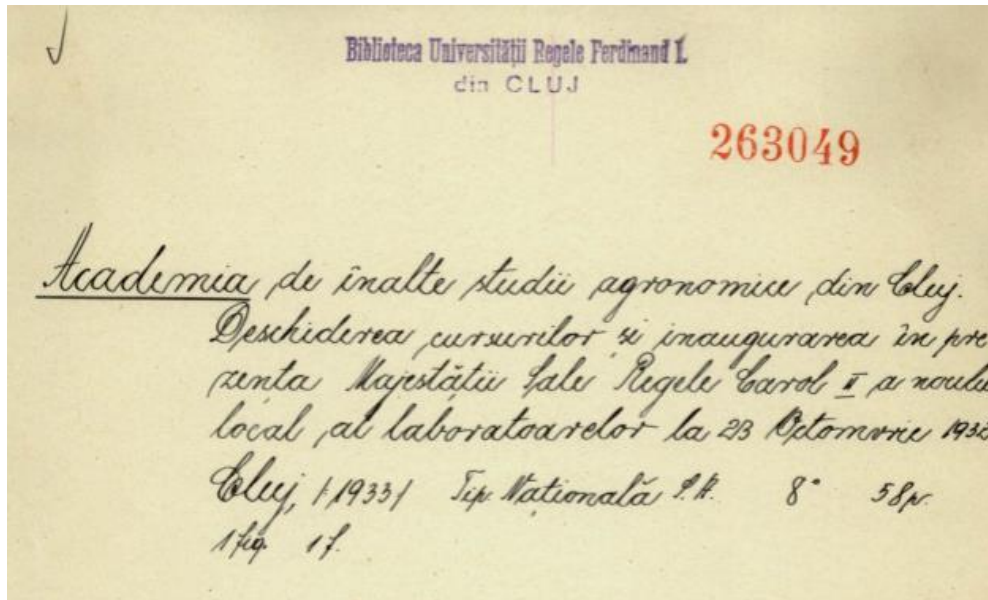 Biblioteca Universității Regele Ferdinand I.
din CLUJ
263049
Academia de înalte studii agronomice din Cluj.
Deschiderea cursurilor și inaugurarea în pre
zența Majestății Sale Regele Carol II a noului
local al laboratoarelor la 23 Octomvrie 1932
Cluj, /1933/ Tip. Națională S.A. 8° 58 p.
1 fig. 1 f.